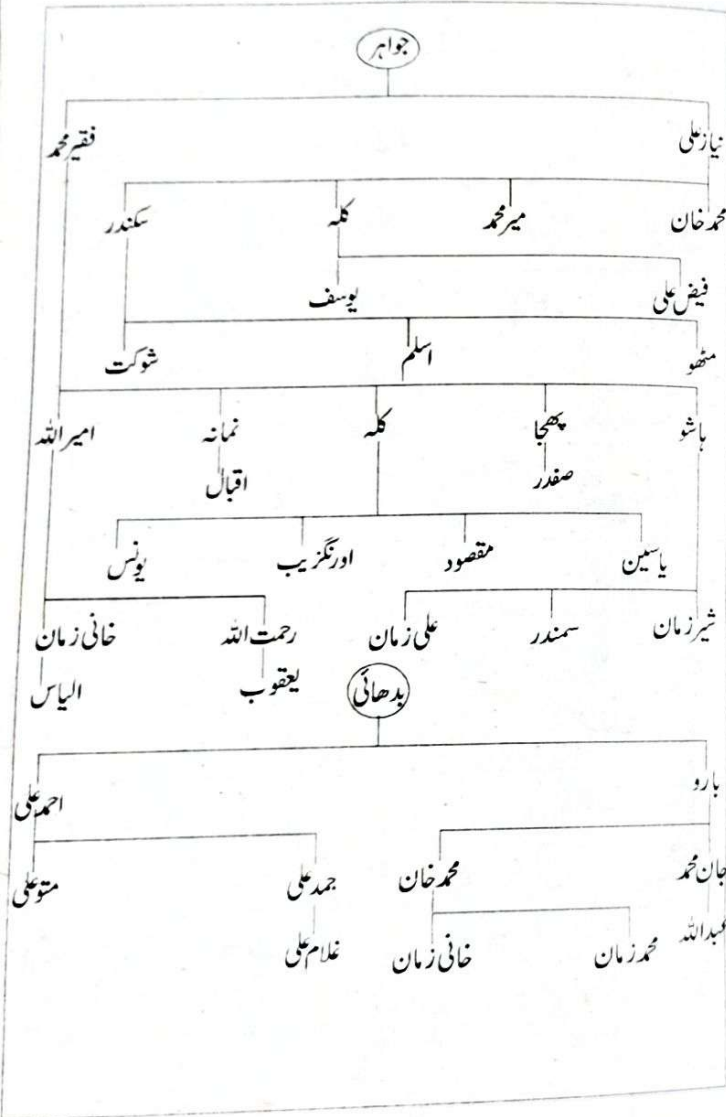 جواہر
نیاز علی فقیر محمد
محمد خان میر محمد کلہ سکندر
فیض علی یوسف
مٹھو اسلم شوکت
ہاشو پھجا کلہ نمانہ امیر اللہ
صفدر اقبال
یاسین مقصود اورنگزیب یونس
شیر زمان سمندر علی زمان رحمت اللہ خانی زمان
یعقوب الیاس
بدھائی
بارو احمد علی
جان محمد محمد خان جمد علی متو علی
عبداللہ محمد زمان خانی زمان غلام علی